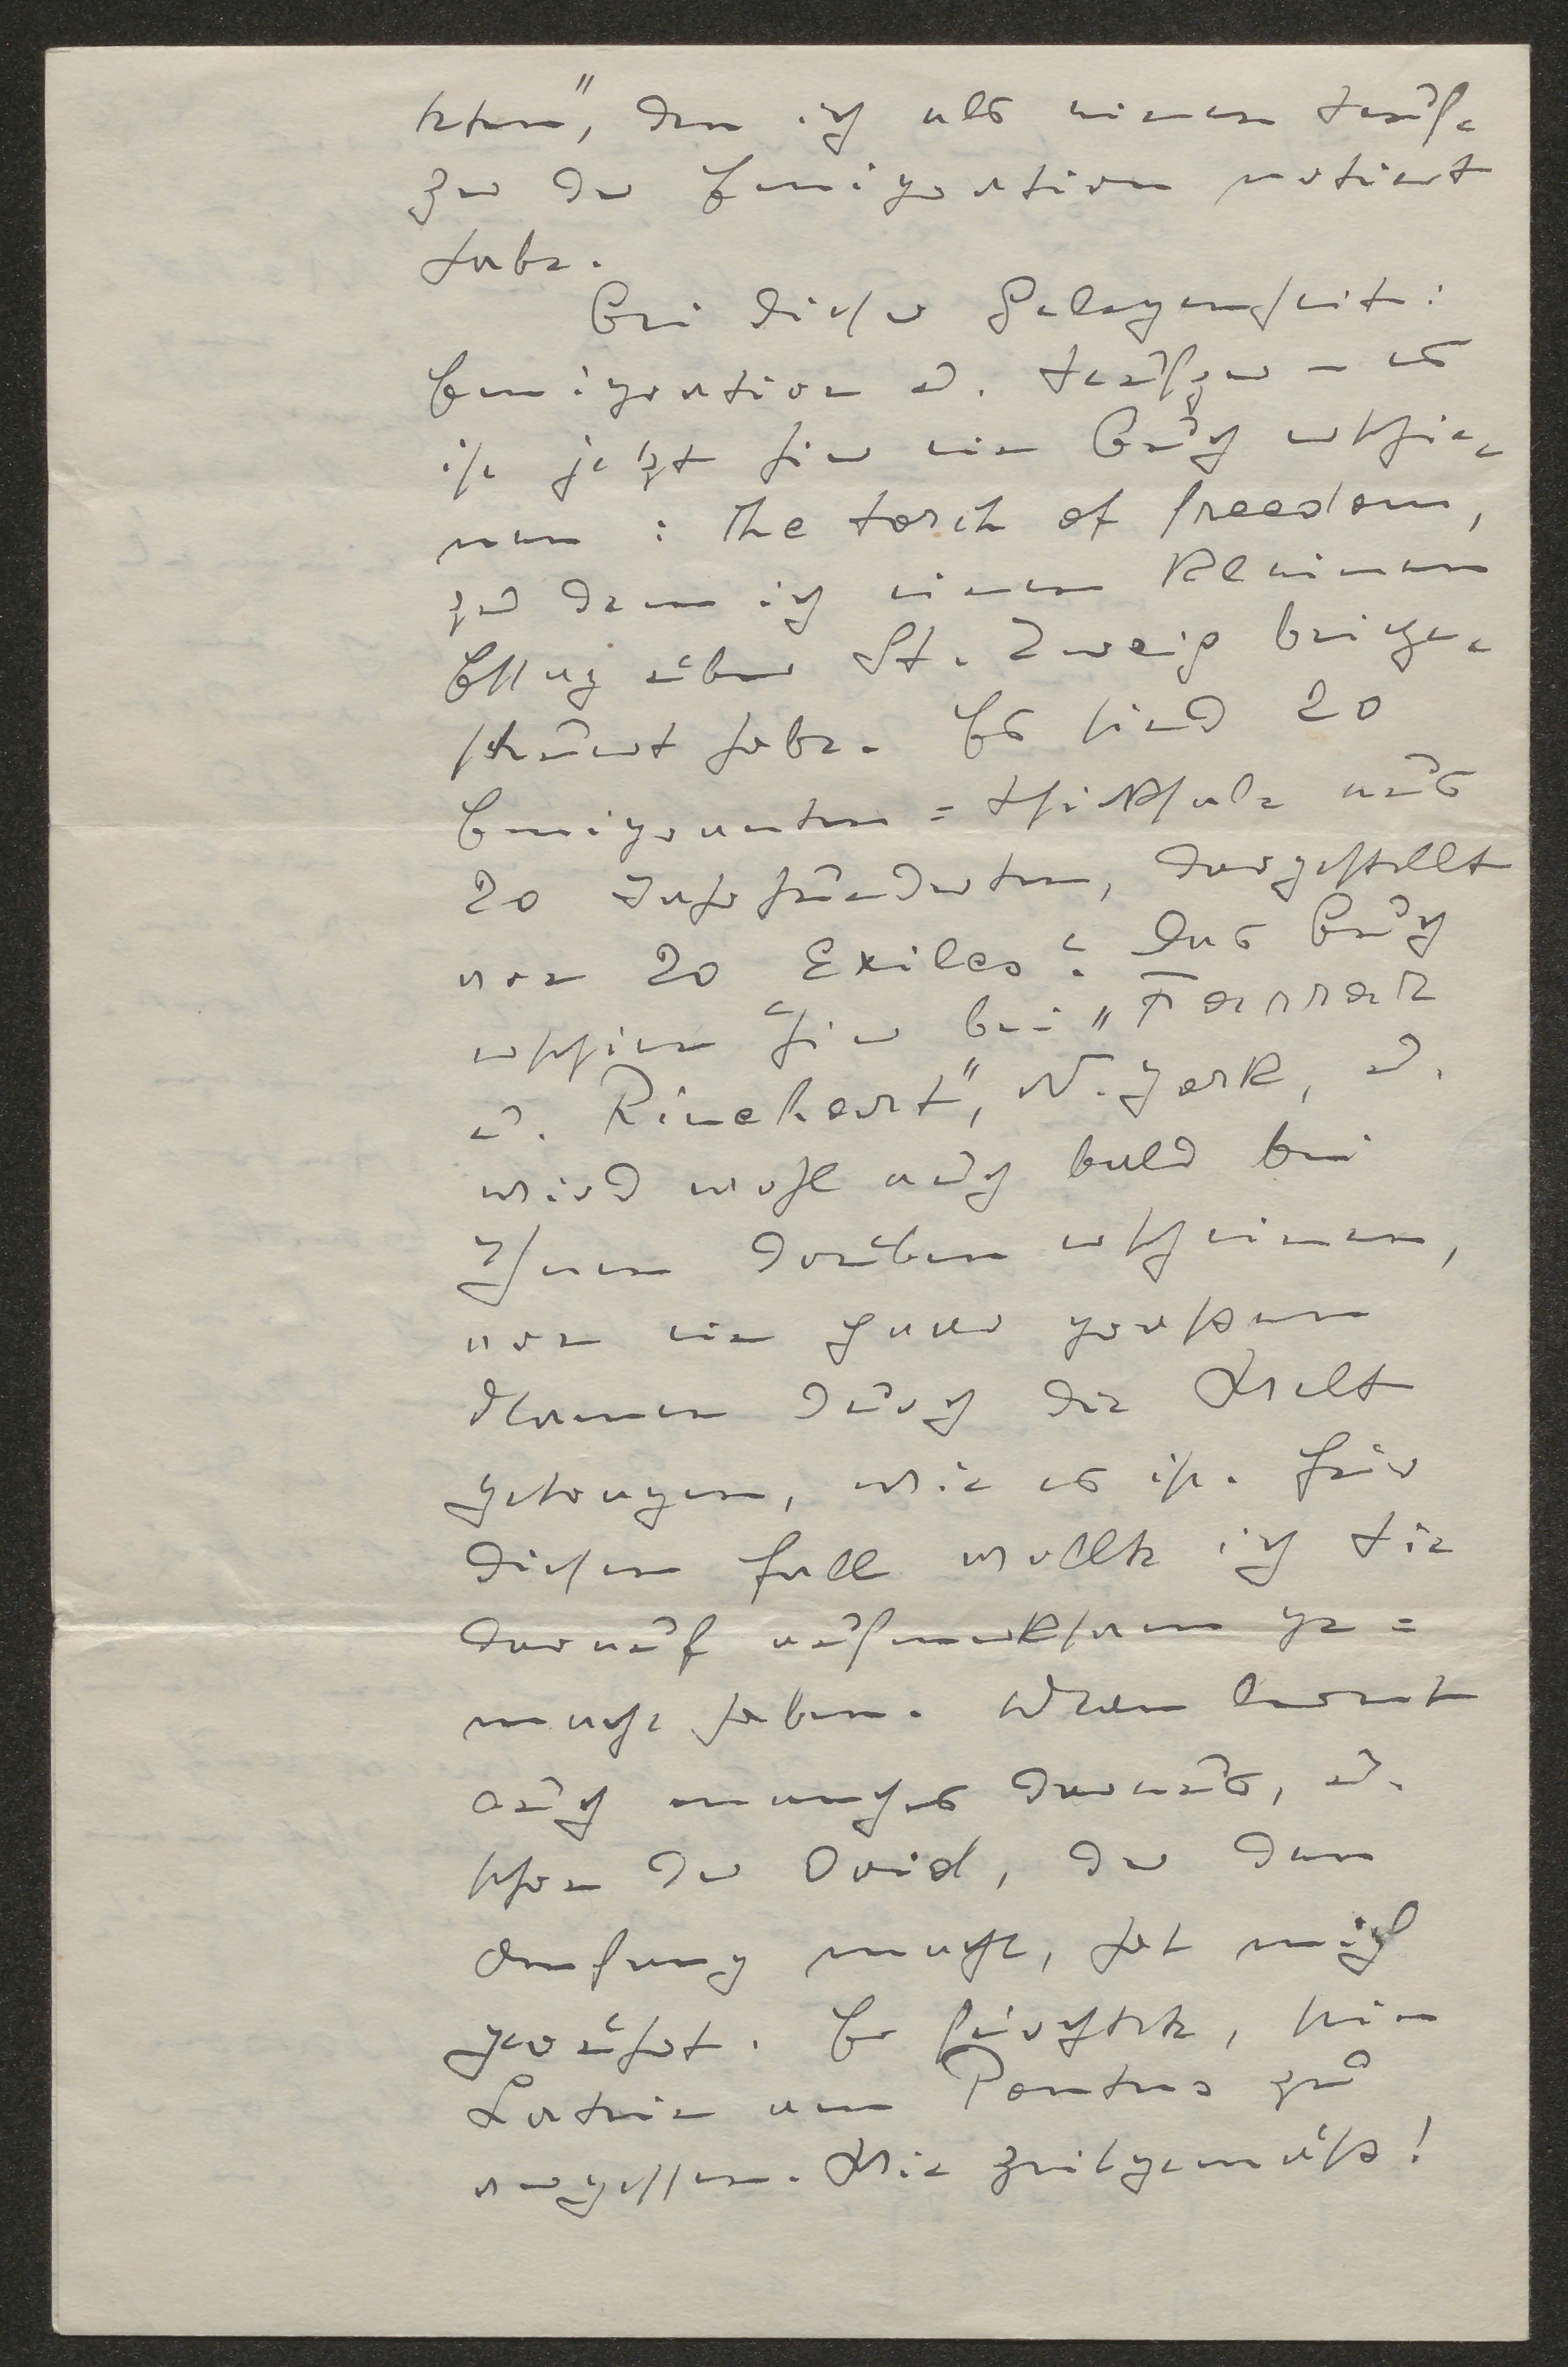 teten", den ich als einen Seuf-
zer der Emigration notiert
habe.
Bei dieser Gelegenheit:
Emigration u. Seufzer – es
ist jetzt hier ein Buch erschie-
nen: The torch of freedom,
zu dem ich einen kleinen
Essay über St. Zweig beige-
steuert habe. Es sind 20
Emigranten=Schicksale aus
20 Jahrhunderten, dargestellt
von 20 Exiles. Das Buch
erschien hier bei „Farrar
u. Rinehart", N. York, u.
wird wohl auch bald bei
Ihnen drüben erscheinen,
von ein paar großen
Namen durch die Welt
getragen, wie es ist. Für
diesen Fall wollte ich Sie
darauf aufmerksam ge=
macht haben. Man lernt
auch manches daraus, u.
schon der Ovid, der den
Anfang macht, hat mich
gerührt. Er fürchtete, sein
Latein am Pontus zu
vergessen. Wie zeitgemäß!